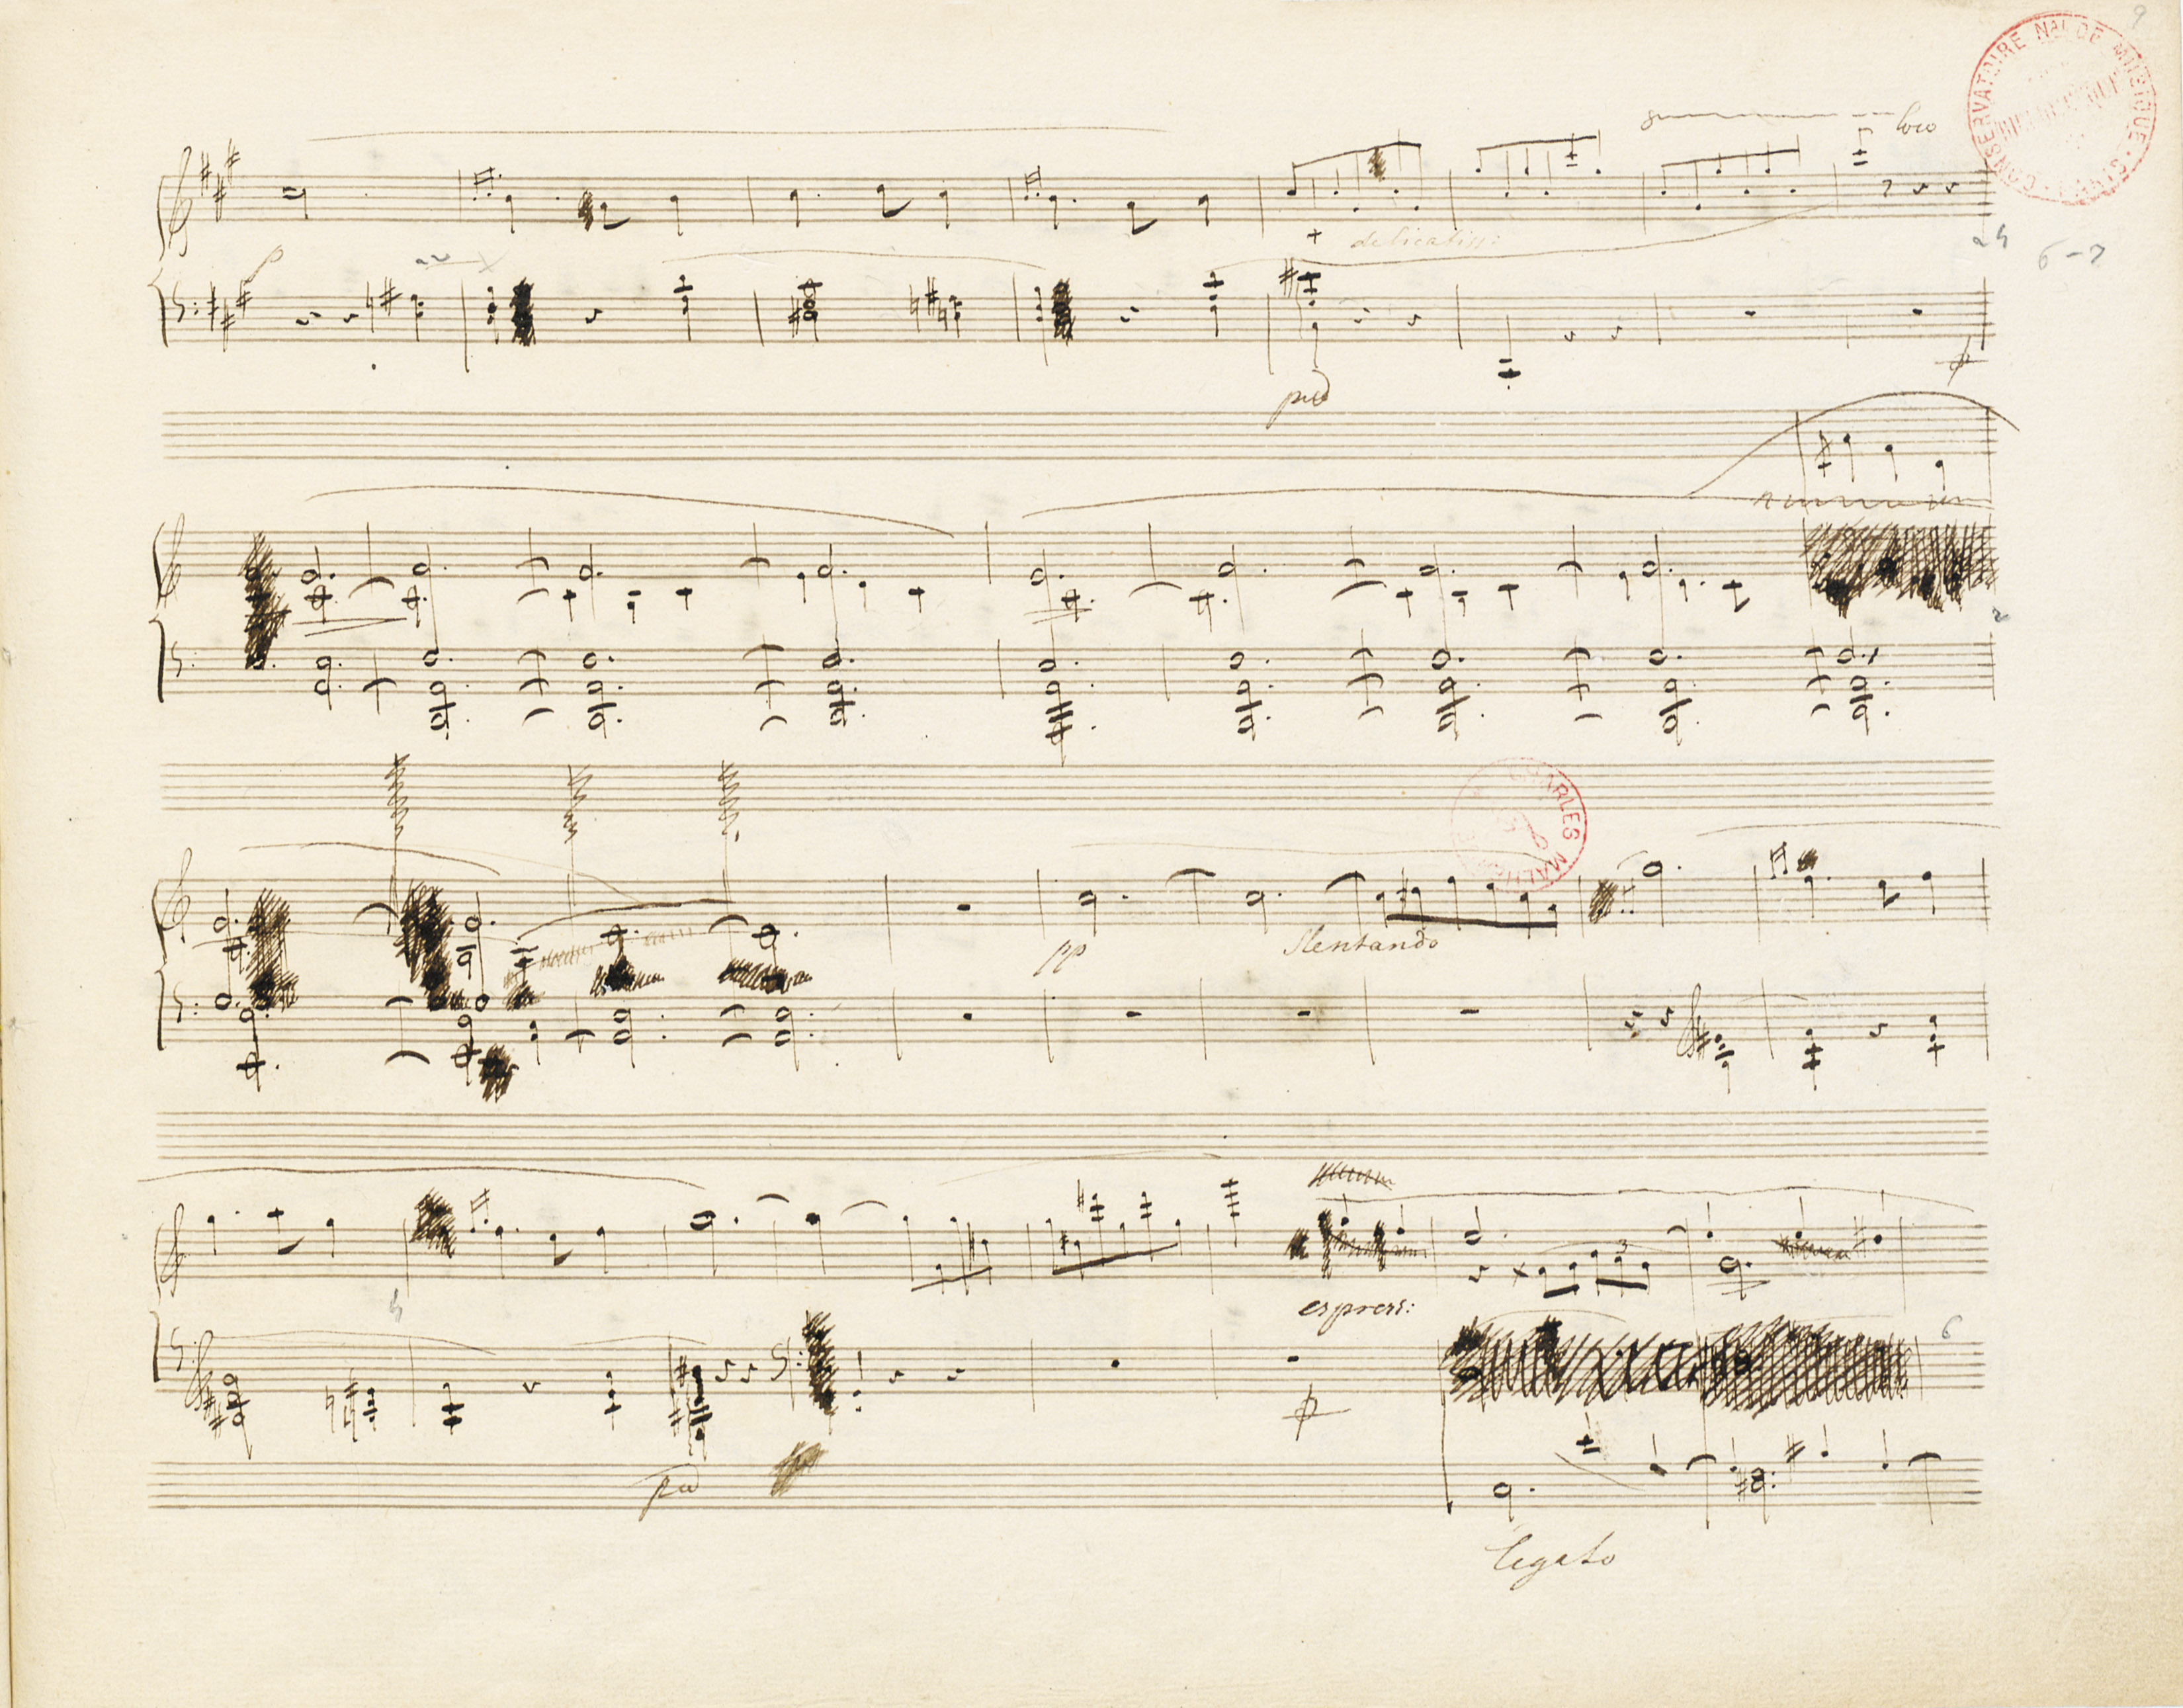 9
CONSERVATOIRE NAL DE MUSIQUE
8 loco
p
delicatiss:
6-7
ped
CHARLES MALHERBE
pp
slentando
espress:
3
6
ped
legato